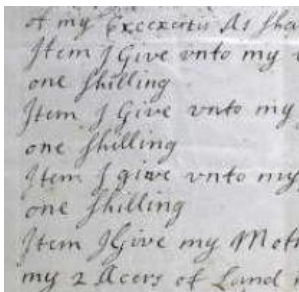 of my Excexertis As sha
Item I Give vnto my
one shilling
Item I Give vnto my
one shilling
Item I give vnto my
one shilling
Item I Give my Moth
my 2 Acers of Land